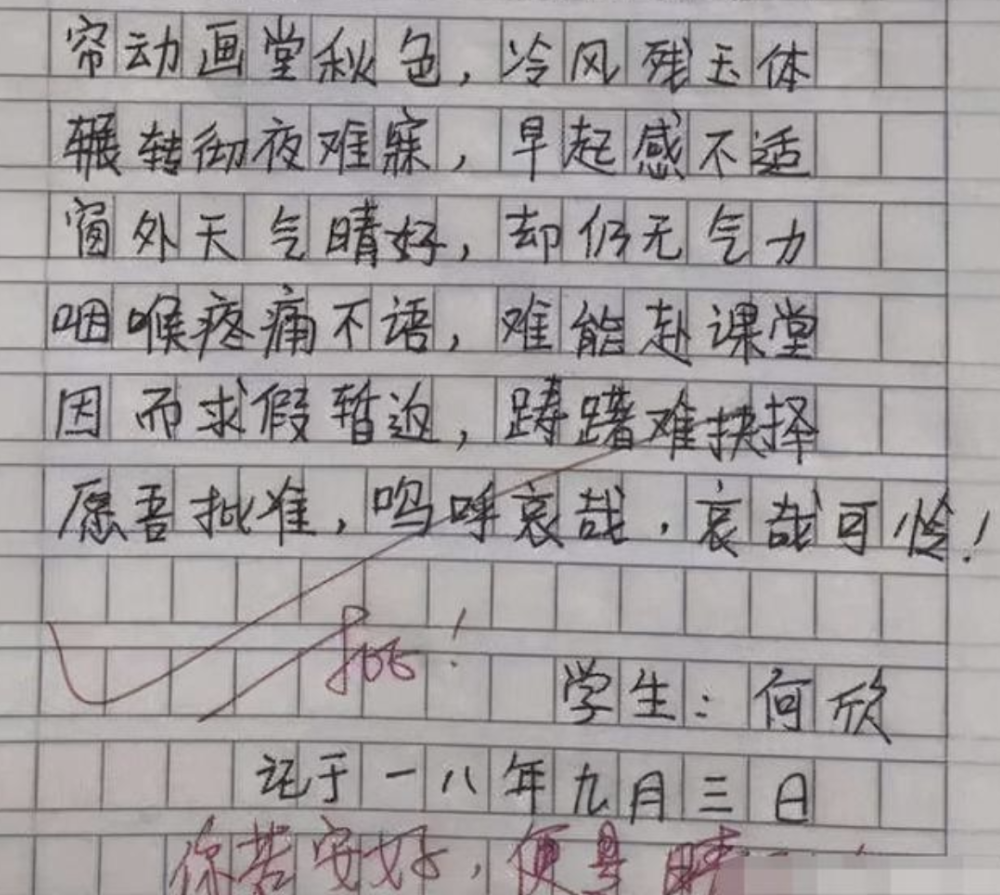 帘动画堂秋色，冷风残玉体
辗转彻夜难寐，早起感不适
窗外天气晴好，却仍无气力
咽喉疼痛不语，难能赴课堂
因而求假暂返，踌躇难抉择
愿吾批准，呜呼哀哉，哀哉可怜！
批！
学生：何欣
记于一八年九月三日
你若安好，便是晴